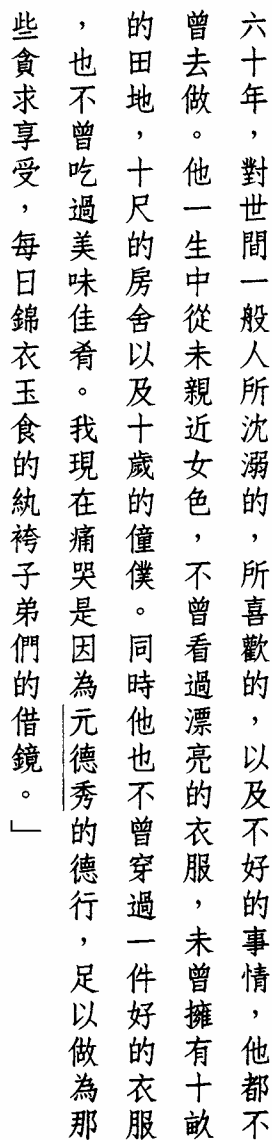 六十年，對世間一般人所沈溺的，所喜歡的，以及不好的事情，他都不
曾去做。他一生中從未親近女色，不曾看過漂亮的衣服，未曾擁有十畝
的田地，十尺的房舍以及十歲的僮僕。同時他也不曾穿過一件好的衣服
，也不曾吃過美味佳肴。我現在痛哭是因為元德秀的德行，足以做為那
些貪求享受，每日錦衣玉食的紈袴子弟們的借鏡。」